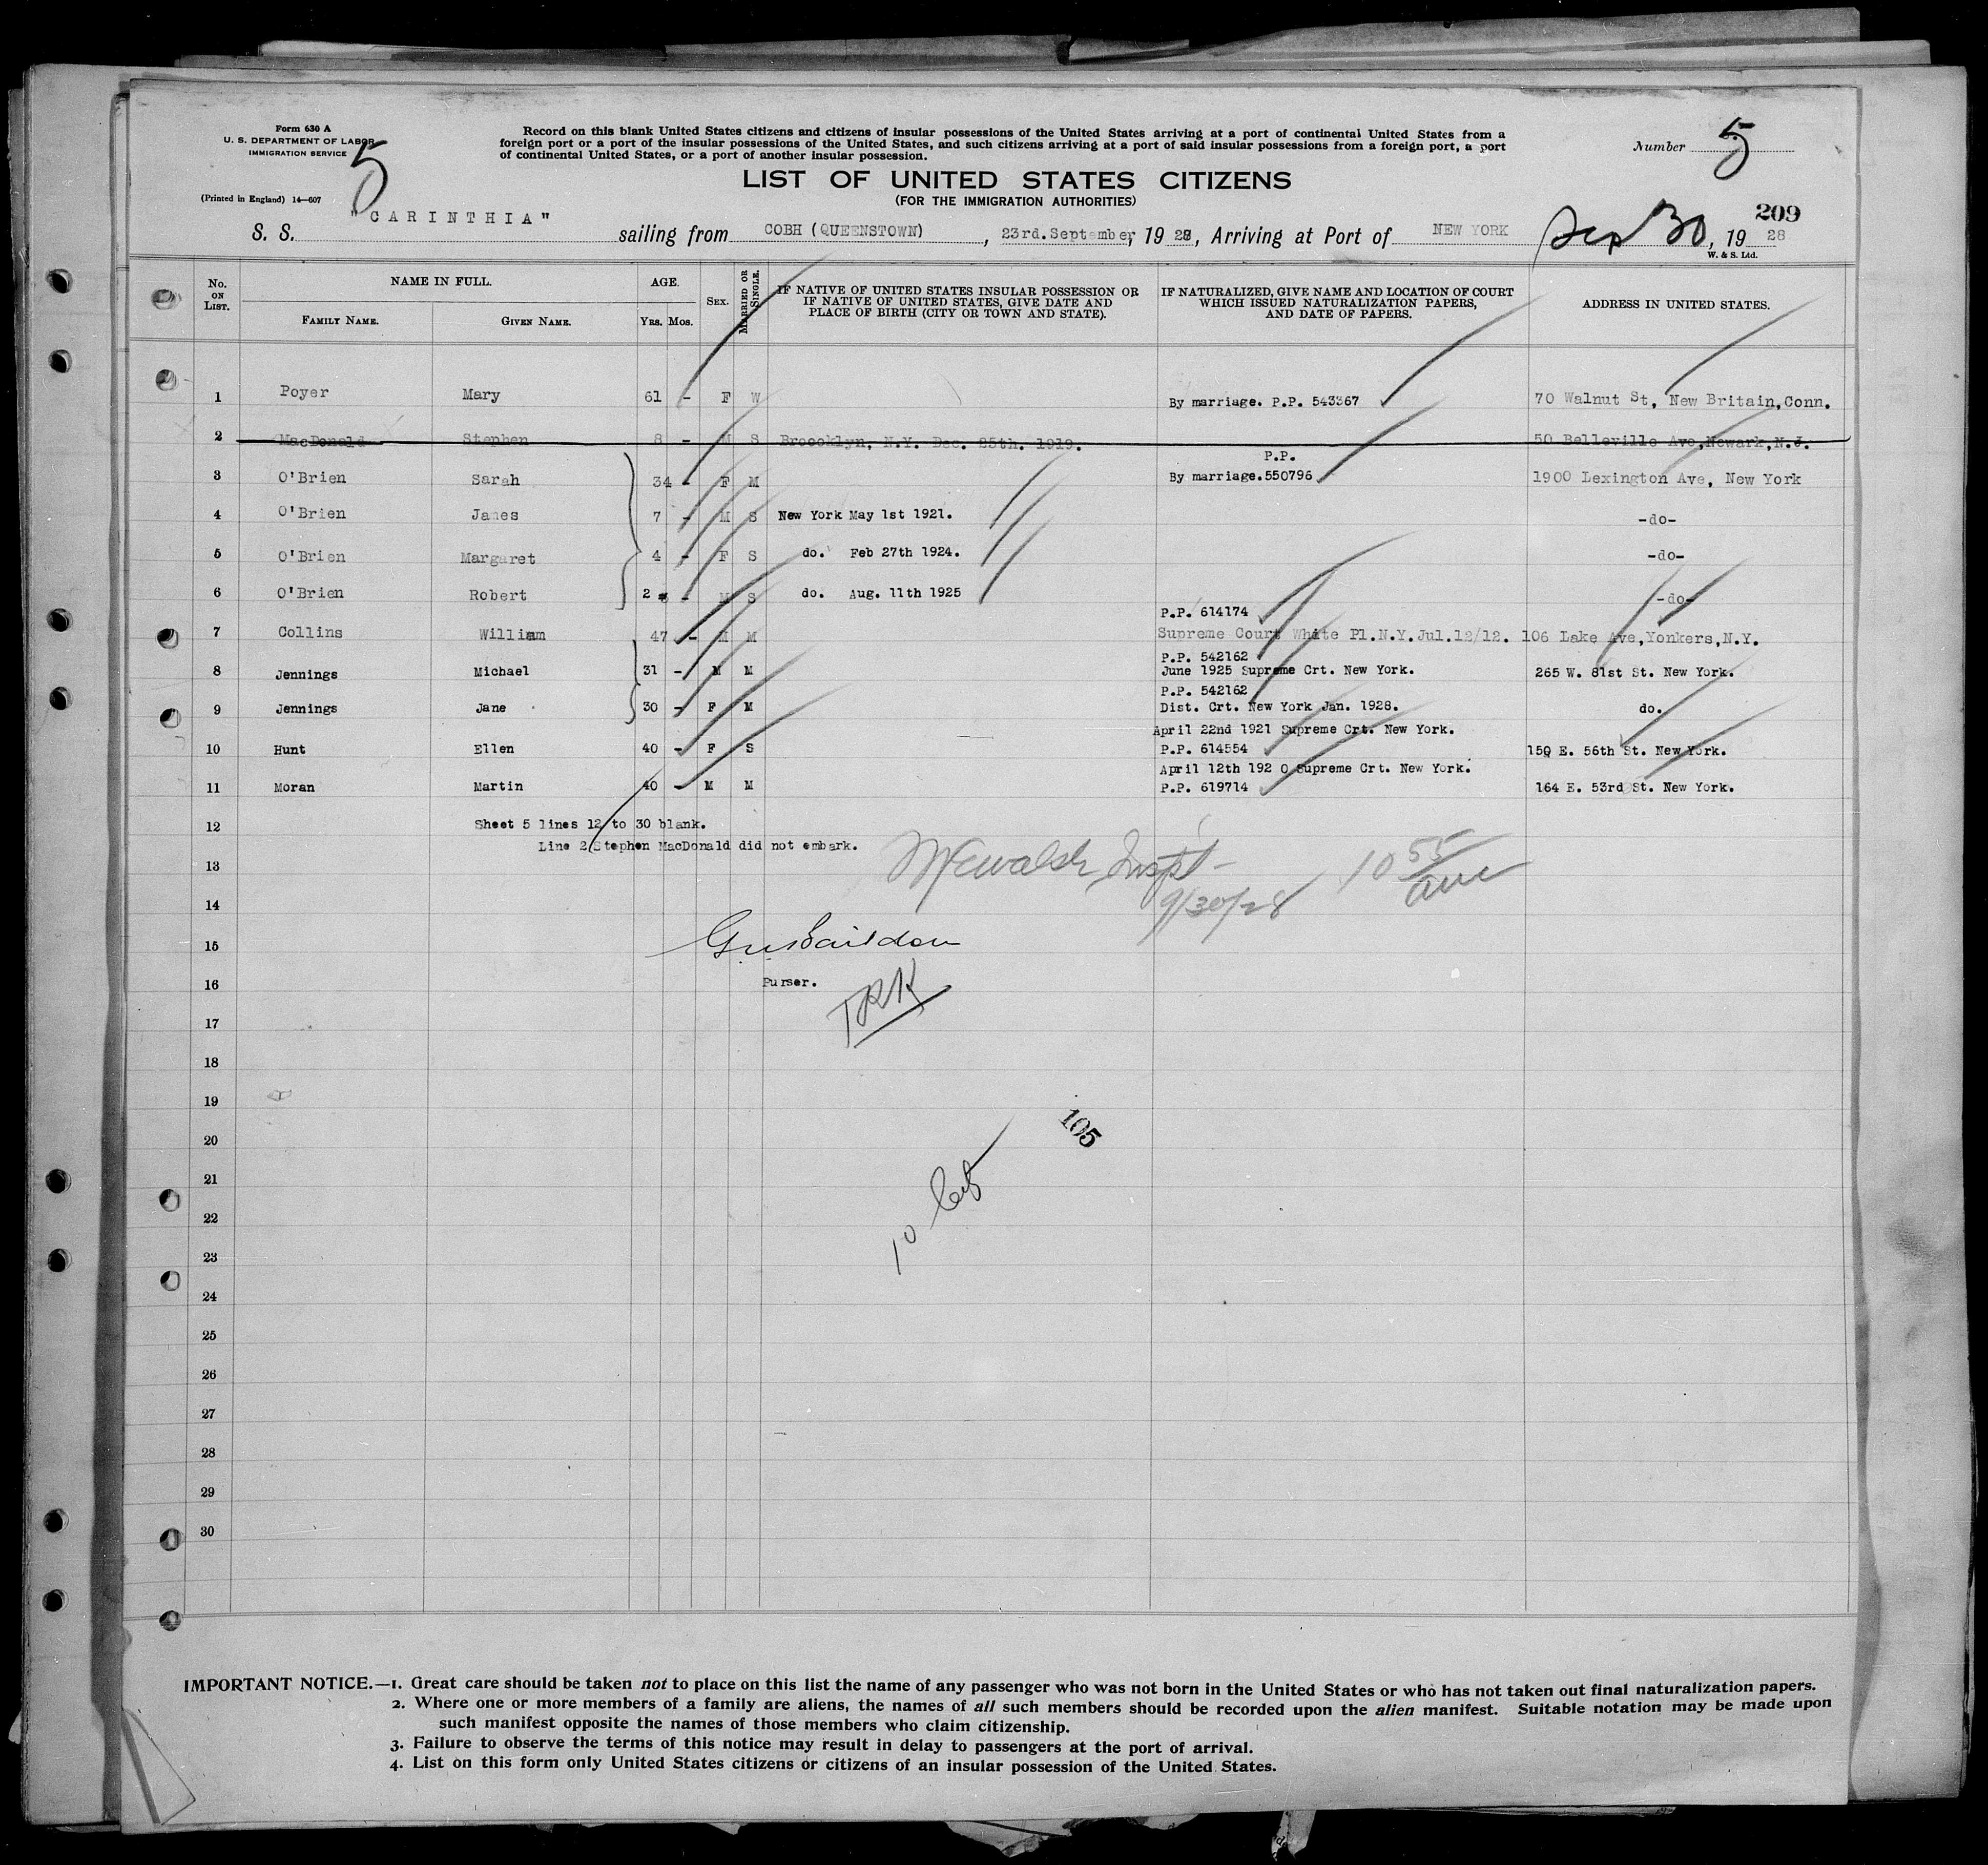 Form 630 A
U. S. DEPARTMENT OF LABOR
IMMIGRATION SERVICE
(Printed in England) 14—607
5
Record on this blank United States citizens and citizens of insular possessions of the United States arriving at a port of continental United States from a
foreign port or a port of the insular possessions of the United States, and such citizens arriving at a port of said insular possessions from a foreign port, a port
of continental United States, or a port of another insular possession.
Number 5
LIST OF UNITED STATES CITIZENS
(FOR THE IMMIGRATION AUTHORITIES)
209
S. S. "CARINTHIA" sailing from COBH (QUEENSTOWN), 23rd.September, 1928, Arriving at Port of NEW YORK Sep 30, 1928
W. & S. Ltd.
No. ON LIST. NAME IN FULL. AGE. SEX. MARRIED OR SINGLE. IF NATIVE OF UNITED STATES INSULAR POSSESSION OR IF NATIVE OF UNITED STATES, GIVE DATE AND PLACE OF BIRTH (CITY OR TOWN AND STATE). IF NATURALIZED, GIVE NAME AND LOCATION OF COURT WHICH ISSUED NATURALIZATION PAPERS, AND DATE OF PAPERS. ADDRESS IN UNITED STATES.
FAMILY NAME. GIVEN NAME. YRS. MOS.
1 Poyer Mary 61 - F W By marriage. P.P. 543367 70 Walnut St, New Britain,Conn.
2 MacDonald Stephen 8 - M S Broocklyn, N.Y. Dec. 25th. 1919. 50 Belleville Ave,Newark,N.J.
P.P.
3 O'Brien Sarah 34 - F M By marriage.550796 1900 Lexington Ave, New York
4 O'Brien James 7 - M S New York May 1st 1921. -do-
5 O'Brien Margaret 4 - F S do. Feb 27th 1924. -do-
6 O'Brien Robert 2 - M S do. Aug. 11th 1925 -do-
P.P. 614174
7 Collins William 47 - M M Supreme Court White Pl.N.Y.Jul.12/12. 106 Lake Ave,Yonkers,N.Y.
P.P. 542162
8 Jennings Michael 31 - M M June 1925 Supreme Crt. New York. 265 W. 81st St. New York.
P.P. 542162
9 Jennings Jane 30 - F M Dist. Crt. New York Jan. 1928. do.
April 22nd 1921 Supreme Crt. New York.
10 Hunt Ellen 40 - F S P.P. 614554 150 E. 56th St. New York.
April 12th 192 0 Supreme Crt. New York.
11 Moran Martin 40 - M M P.P. 619714 164 E. 53rd St. New York.
12 Sheet 5 lines 12 to 30 blank.
Line 2 Stephen MacDonald did not embark.
13 10 55 am
14 9/30/28
15
16 Purser.
17 TRK
18
19
20 105
21
22 10
23
24
25
26
27
28
29
30
IMPORTANT NOTICE.—1. Great care should be taken not to place on this list the name of any passenger who was not born in the United States or who has not taken out final naturalization papers.
2. Where one or more members of a family are aliens, the names of all such members should be recorded upon the alien manifest. Suitable notation may be made upon
such manifest opposite the names of those members who claim citizenship.
3. Failure to observe the terms of this notice may result in delay to passengers at the port of arrival.
4. List on this form only United States citizens or citizens of an insular possession of the United States.